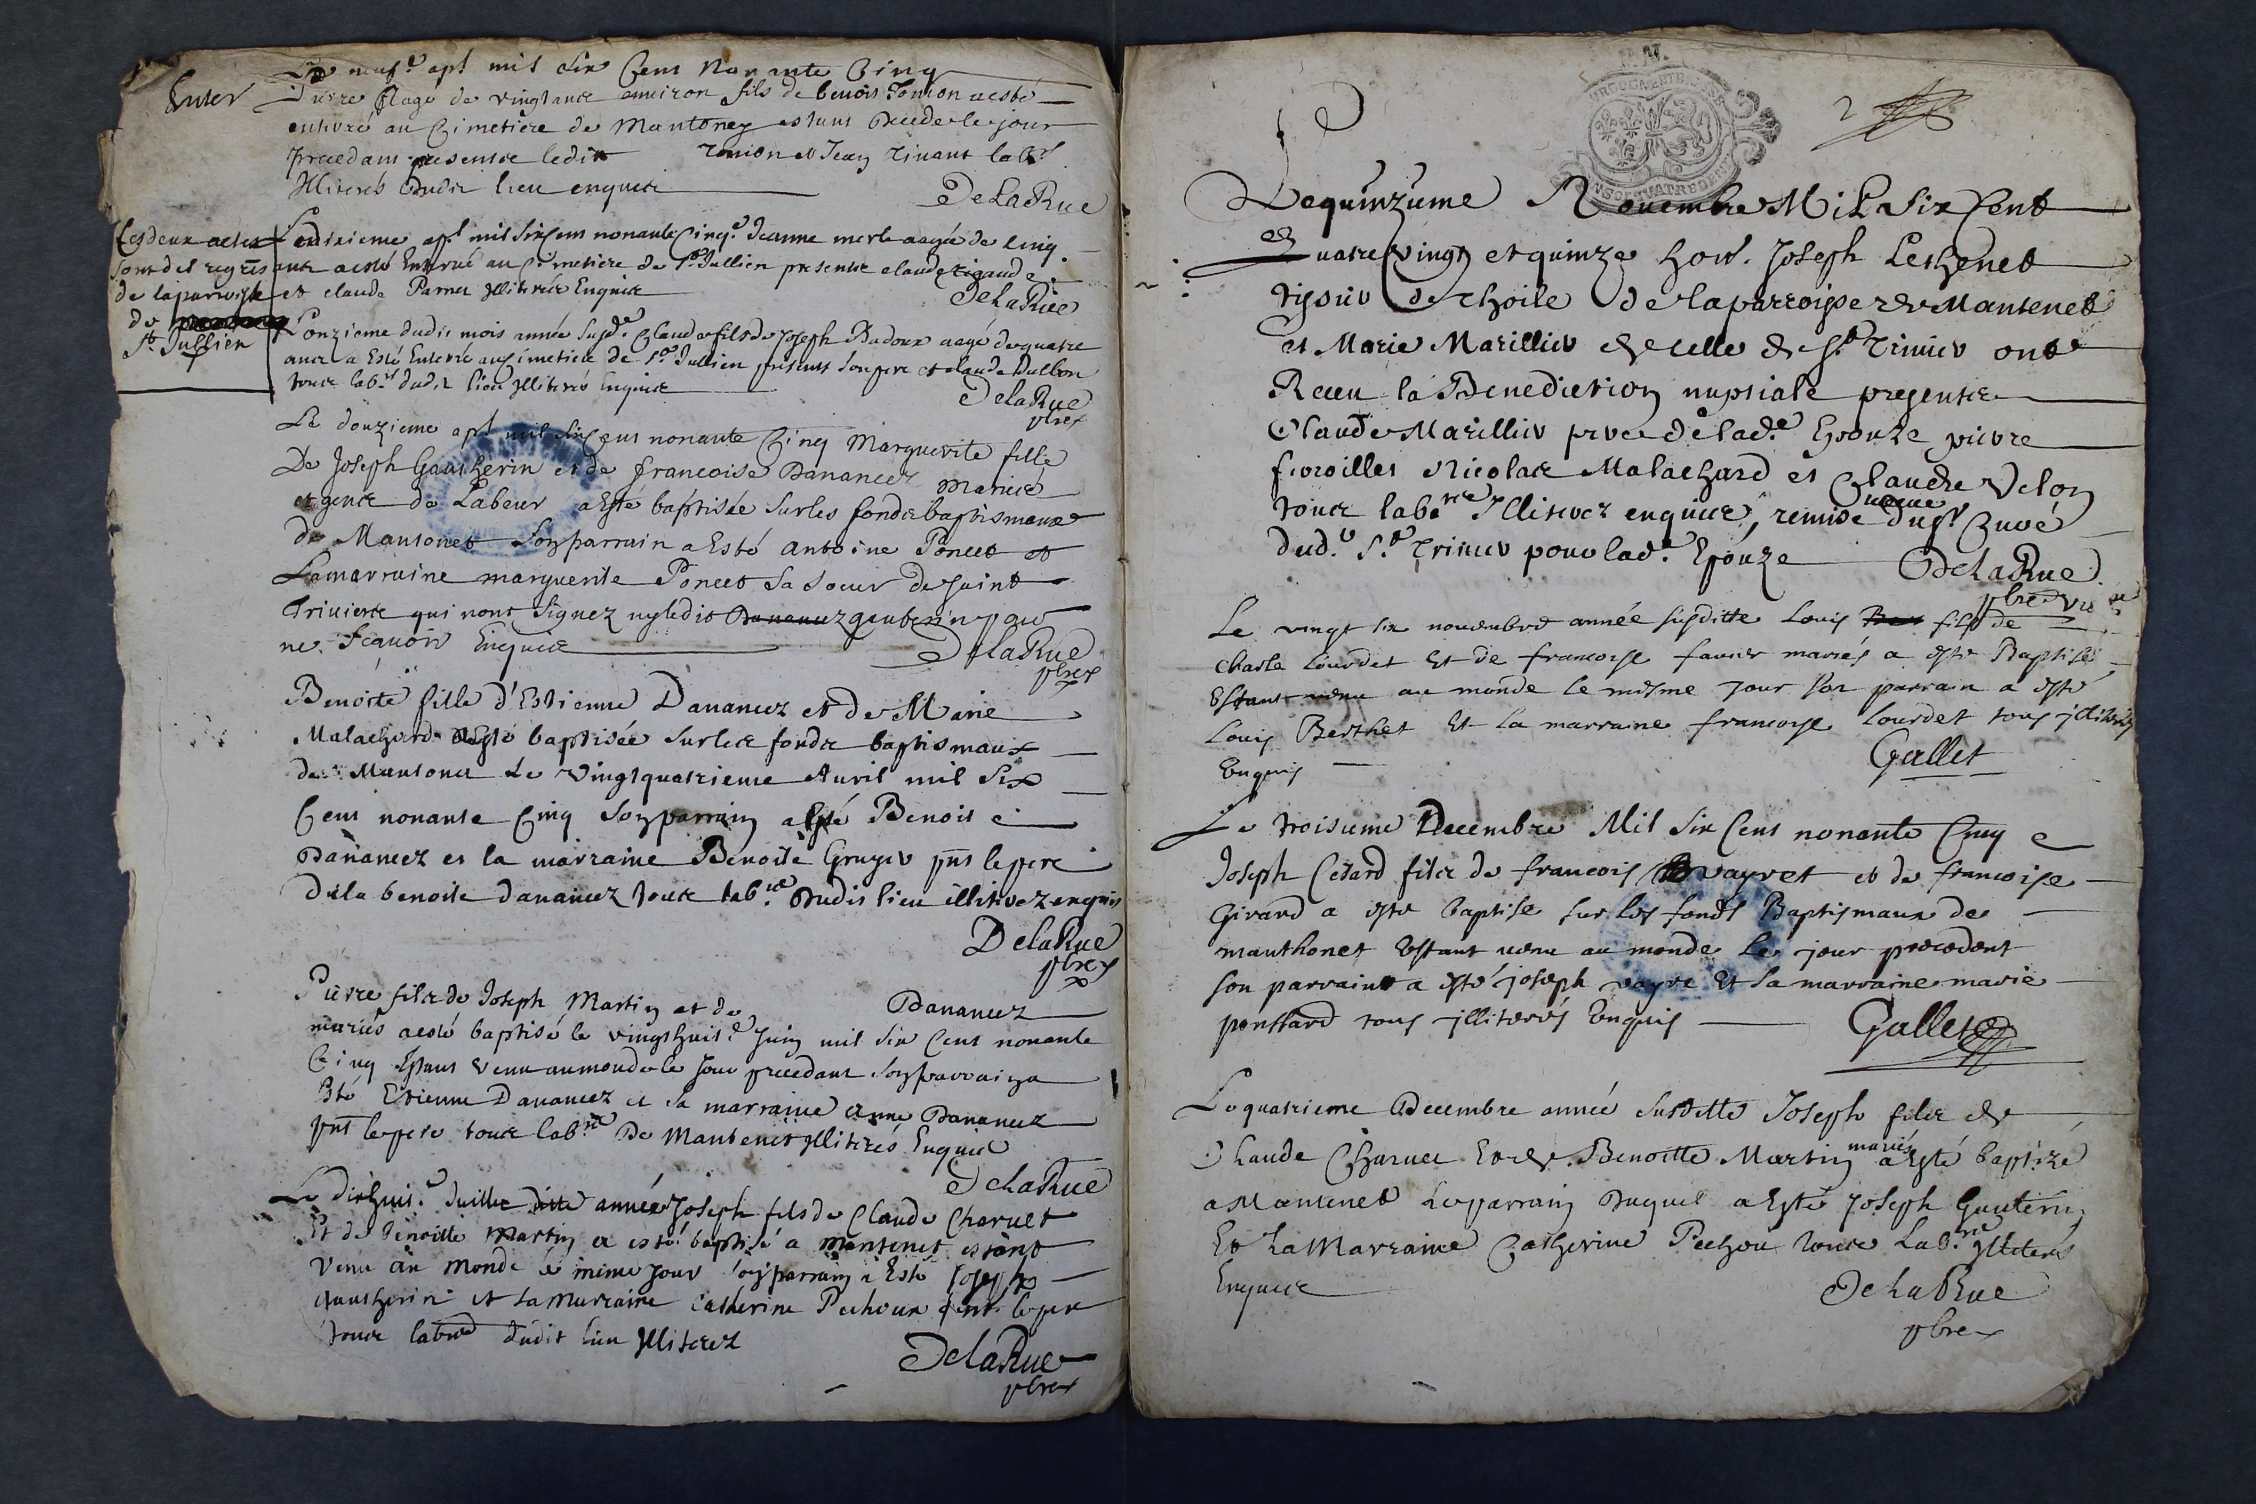 Enter
Le neuf.e apl mil six Cens Nonante Cinq
Pierre Elagé de vingt ans environ fils de benois Tonion a esté
enterré au Cimetiere de Mantoney estans decedé le jour
precedans presense ledit Tonion et Jean tinant lab.rs
Illiterés dudit lieu enquis
DeLaRue
Ces deux actes
sont des regres
de laparroisse
de
St Jullien
Le dixieme apl mil six cens nonante Cinq.e Jeanne merle aagée de Cinq
ans a esté Enterré au Cimetiere de St Jullien presense claude rigaude
et claude Parnet Illiterés Enquis
DeLaRue
L'onzieme dudit mois année susd.e Claude fils de Joseph Badoux aagé de quatre
ans a Esté Enterré au Cimetiere de St Jullien presents son pere et claude Bullon
tous lab.rs dudit lieu Illiterés Enquis
DelaRue
pbre
Le douzieme apl mil six cens nonante Cinq Marguerite fille
De Joseph Gautherin et de francoise Dananchez mariés
et gens de Labeur a Esté baptisée sur les fonds baptismaux
de Mantonet Son parrain a Esté Antoine Poncet et
La marraine marguerite Poncet sa soeur de saint
Trivier qui nont signez ny ledit Gauterin pour
ne scavoir Enquis
DelaRue
pbre
Benoite fille d'Estienne Dananez et de Marie
Malachard a Esté baptisée sur les fonds baptismaux
de Mantonet Le vingtquatrieme Avril mil Six
Cens nonante Cinq Son parrain a Esté Benois
Dananez et la marraine Benoite Gruyer pns le pere
de la benoite dananez tous lab.rs Dudit lieu illiterez enquis
DelaRue
pbre
Pierre fils de Joseph Martin et de Dananez
mariés a esté baptisé le vingthuit.e Juin mil Six Cens nonante
Cinq Estans Venu au monde le Jour precedans Son parrain a
Esté Etienne Dananez et sa marraine Anne Dananez
pns le pere tous lab.rs De Mantenet Illiterés Enquis
DelaRue
Le dixhuit.e Juillet ditte année Joseph fils de Claude Charuet
Et de benoitte Martin a esté baptisé a Mantenet estant
Venu au Monde le mime jour son parrain a Esté Joseph
Gautherin et La Marraine Catherine Pechoux pnt le pere
tous lab.rs dudit lieu Illiterez
DelaRue
pbre
2
Le quinzieme Novembre Mil Six Cent
quatre vingt et quinze hon. Joseph Lethenet
tissier de thoile de la parroisse de Mantenet
et Marie Marillier de celle de St Trivier ont
Receu la Benediction nuptiale presents
Claude Marillier pere de lad.e Epouze pierre
fioroilles Nicolas Malachard et Claude Velon
tous lab.rs Illiterez enquis, remise du sr Curé
dud. St Trivier pour lad.e Epouze
DelaRue
pbre vic.re
Le vingt six novembre année susditte Louis fils de
charle Lourdet Et de francoise favier mariés a esté Baptisé
Estant venu au monde le mesme jour son parrain a esté
Louis Berthet Et la marraine francoise Lourdet tous illiterés
Enquis
Gallet
Le troisieme Decembre Mil Six Cens nonante Cinq
Joseph Cesard fils de francois vayret et de francoise
Girard a esté baptisé sur les fonds Baptismaux de
manthonet Estant venu au monde le jour precedent
son parrain a esté joseph vayre Et sa marraine marie
ponssard tous illiterés Enquis
Gallet
Le quatrieme Decembre année Susditte Joseph fils de
Claude Charuet Et de Benoitte Martin mariés a Esté baptizé
a Mantenet Le parrain Duquel a Esté Joseph Gauterin
Et La Marraine Catherine Pechoux tous Lab.rs Illiterés
Enquis
DeLaRue
pbre